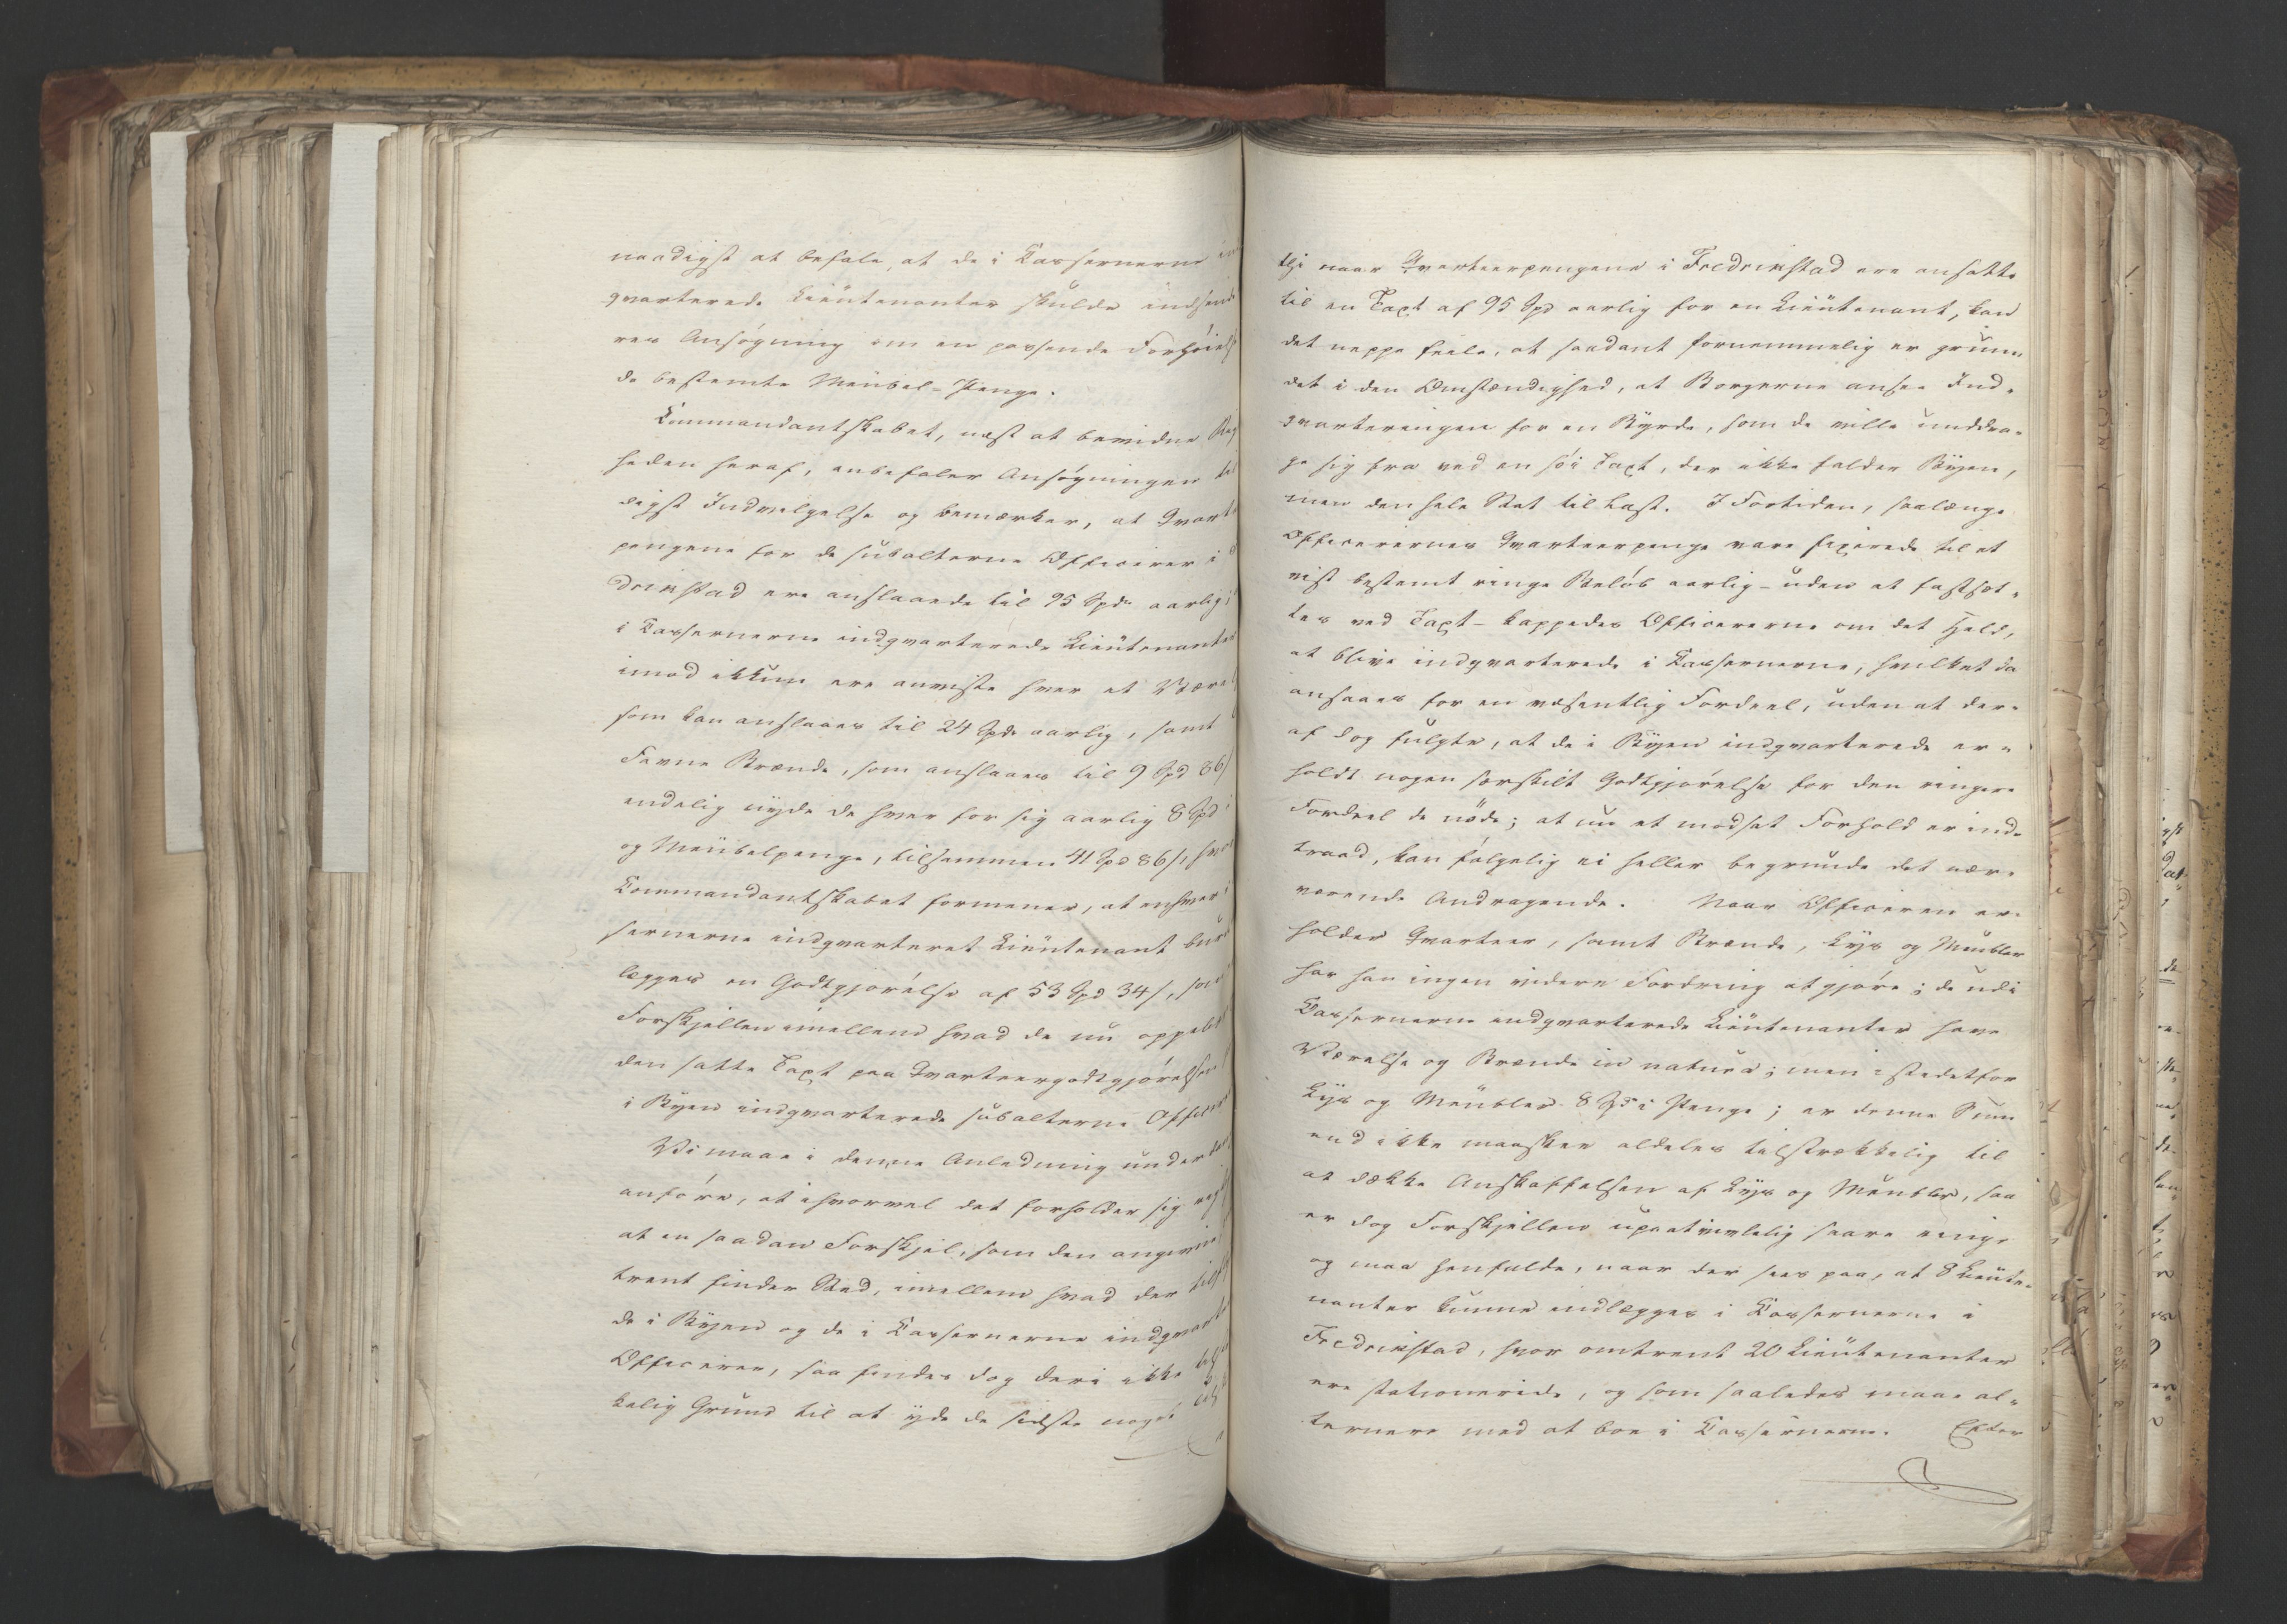 naadigst at befale, at de i Casernerne in
qvarterede Lieutenanter skulde indsend
res Ansøgning om en passende Forhøiels
de bestemte Meubel-Penge.
Commandantskabet, næst at bevidne Rig
heden heraf, anbefaler Ansøgningen til
digst Indvilgelse og bemærker, at Qvart
pengene for de subalterne Officerer i
drikstad ere anslaaede til 95 Spd aarlig;
i Cassernerne indqvarterede Lieutenanter
imod ikkun ere anviste hver et Værel
som kan anslaaes til 24 Spd aarlig, samt
Favne Brænde, som anslaaes til 9 Spd 86/
endelig nyde de hver for sig aarlig 8 Spd i
og Meubelpenge, tilsammen 41 Spd 86/, hvor
Commandantskabet formener, at enhver i
sernerne indqvarteret Lieutenant burd
lægges en Godtgjørelse af 53 Spd 34/, som
Forskjellen imellem hvad de nu oppeb
den satte Taxt paa Qvarteergodtgjørelsen
i Byen indqvarterede subalterne Officer
Vi maae i denne Anledning underd
anføre, at ihvorvel det forholder sig rig
at en saadan Forskjel, som den angivne
trent finder Sted, imellem hvad der tilst
de i Byen og de i Cassernerne indqvart
Officerer, saa findes dog deri ikke til
kelig Grund til at yde de sidste noget til
thi naar Qvarteerpengene i Fredrikstad ere ansatte
til en Taxt af 95 Spd aarlig for en Lieutenant, kan
det neppe feile, at saadant fornemmelig er grun¬
det i den Omstændighed, at Borgerne ansee Ind¬
qvarteringen for en Byrde, som de ville unddra¬
ge sig fra ved en høi Taxt, der ikke falder Byen,
men den hele Stat til Last. I Fortiden, saalænge
Officerernes Qvarteerpenge vare fixerede til et
vist bestemt ringe Beløb aarlig - uden at fastsæt¬
tes ved Taxt - kappedes Officererne om det Held,
at blive indqvarterede i Cassernerne, hvilket da
ansaaes for en væsentlig Fordeel, uden at der¬
af dog fulgte, at de i Byen indqvarterede er¬
holdt nogen særskilt Godtgjørelse for den ringere
Fordeel de nøde; at nu et modsat Forhold er ind¬
traad, kan følgelig ei heller begrunde det nær¬
værende Andragende. Naar Officeren er¬
holder Qvarteer, samt Brænde, Lys og Meubler
har han ingen videre Fordring at gjøre; de udi
Cassernerne indqvarterede Lieutenanter have
Værelse og Brænde in natura; men istedetfor
Lys og Meubler 8 Spd i Penge; er denne Sum
end ikke maaskee aldeles tilstrækkelig til
at dække Anskaffelsen af Lys og Meubler, saa
er dog Forskjellen upaatvivlelig saare ringe
og maa henfalde, naar der sees paa, at 8 Lieute¬
nanter kunne indlægges i Cassernerne i
Fredrikstad, hvor omtrent 20 Lieutenanter
ere stationerede, og som saaledes maae al¬
ternere med at boe i Cassernerne. Efter